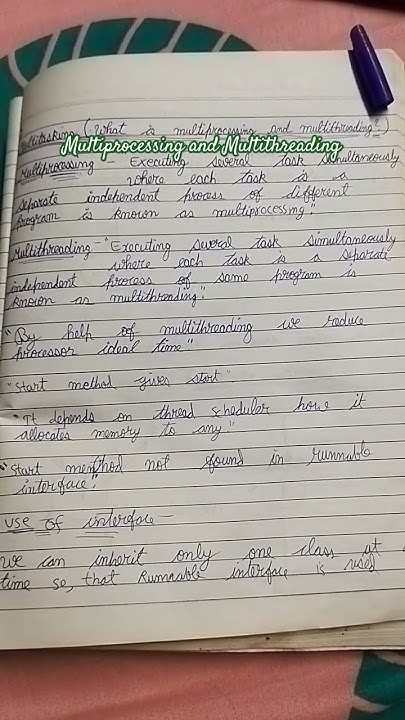 Multitasking (What is multiprocessing and multithreading?)
Multiprocessing and Multithreading
Multiprocessing Executing several task simultaneously
where each task is a
separate independent process of different
program is known as multiprocessing."
Multithreading "Executing several task simultaneously
where each task is a separate
independent process of same program is
known as multithreading."
"By help of multithreading we reduce
processor ideal time"
"Start method gives start"
"It depends on thread schedular how it
allocates memory to any"
"Start menthod not found in runnable
interface."
use of interface —
we can inherit only one class at
time so, that Runnable interface is used